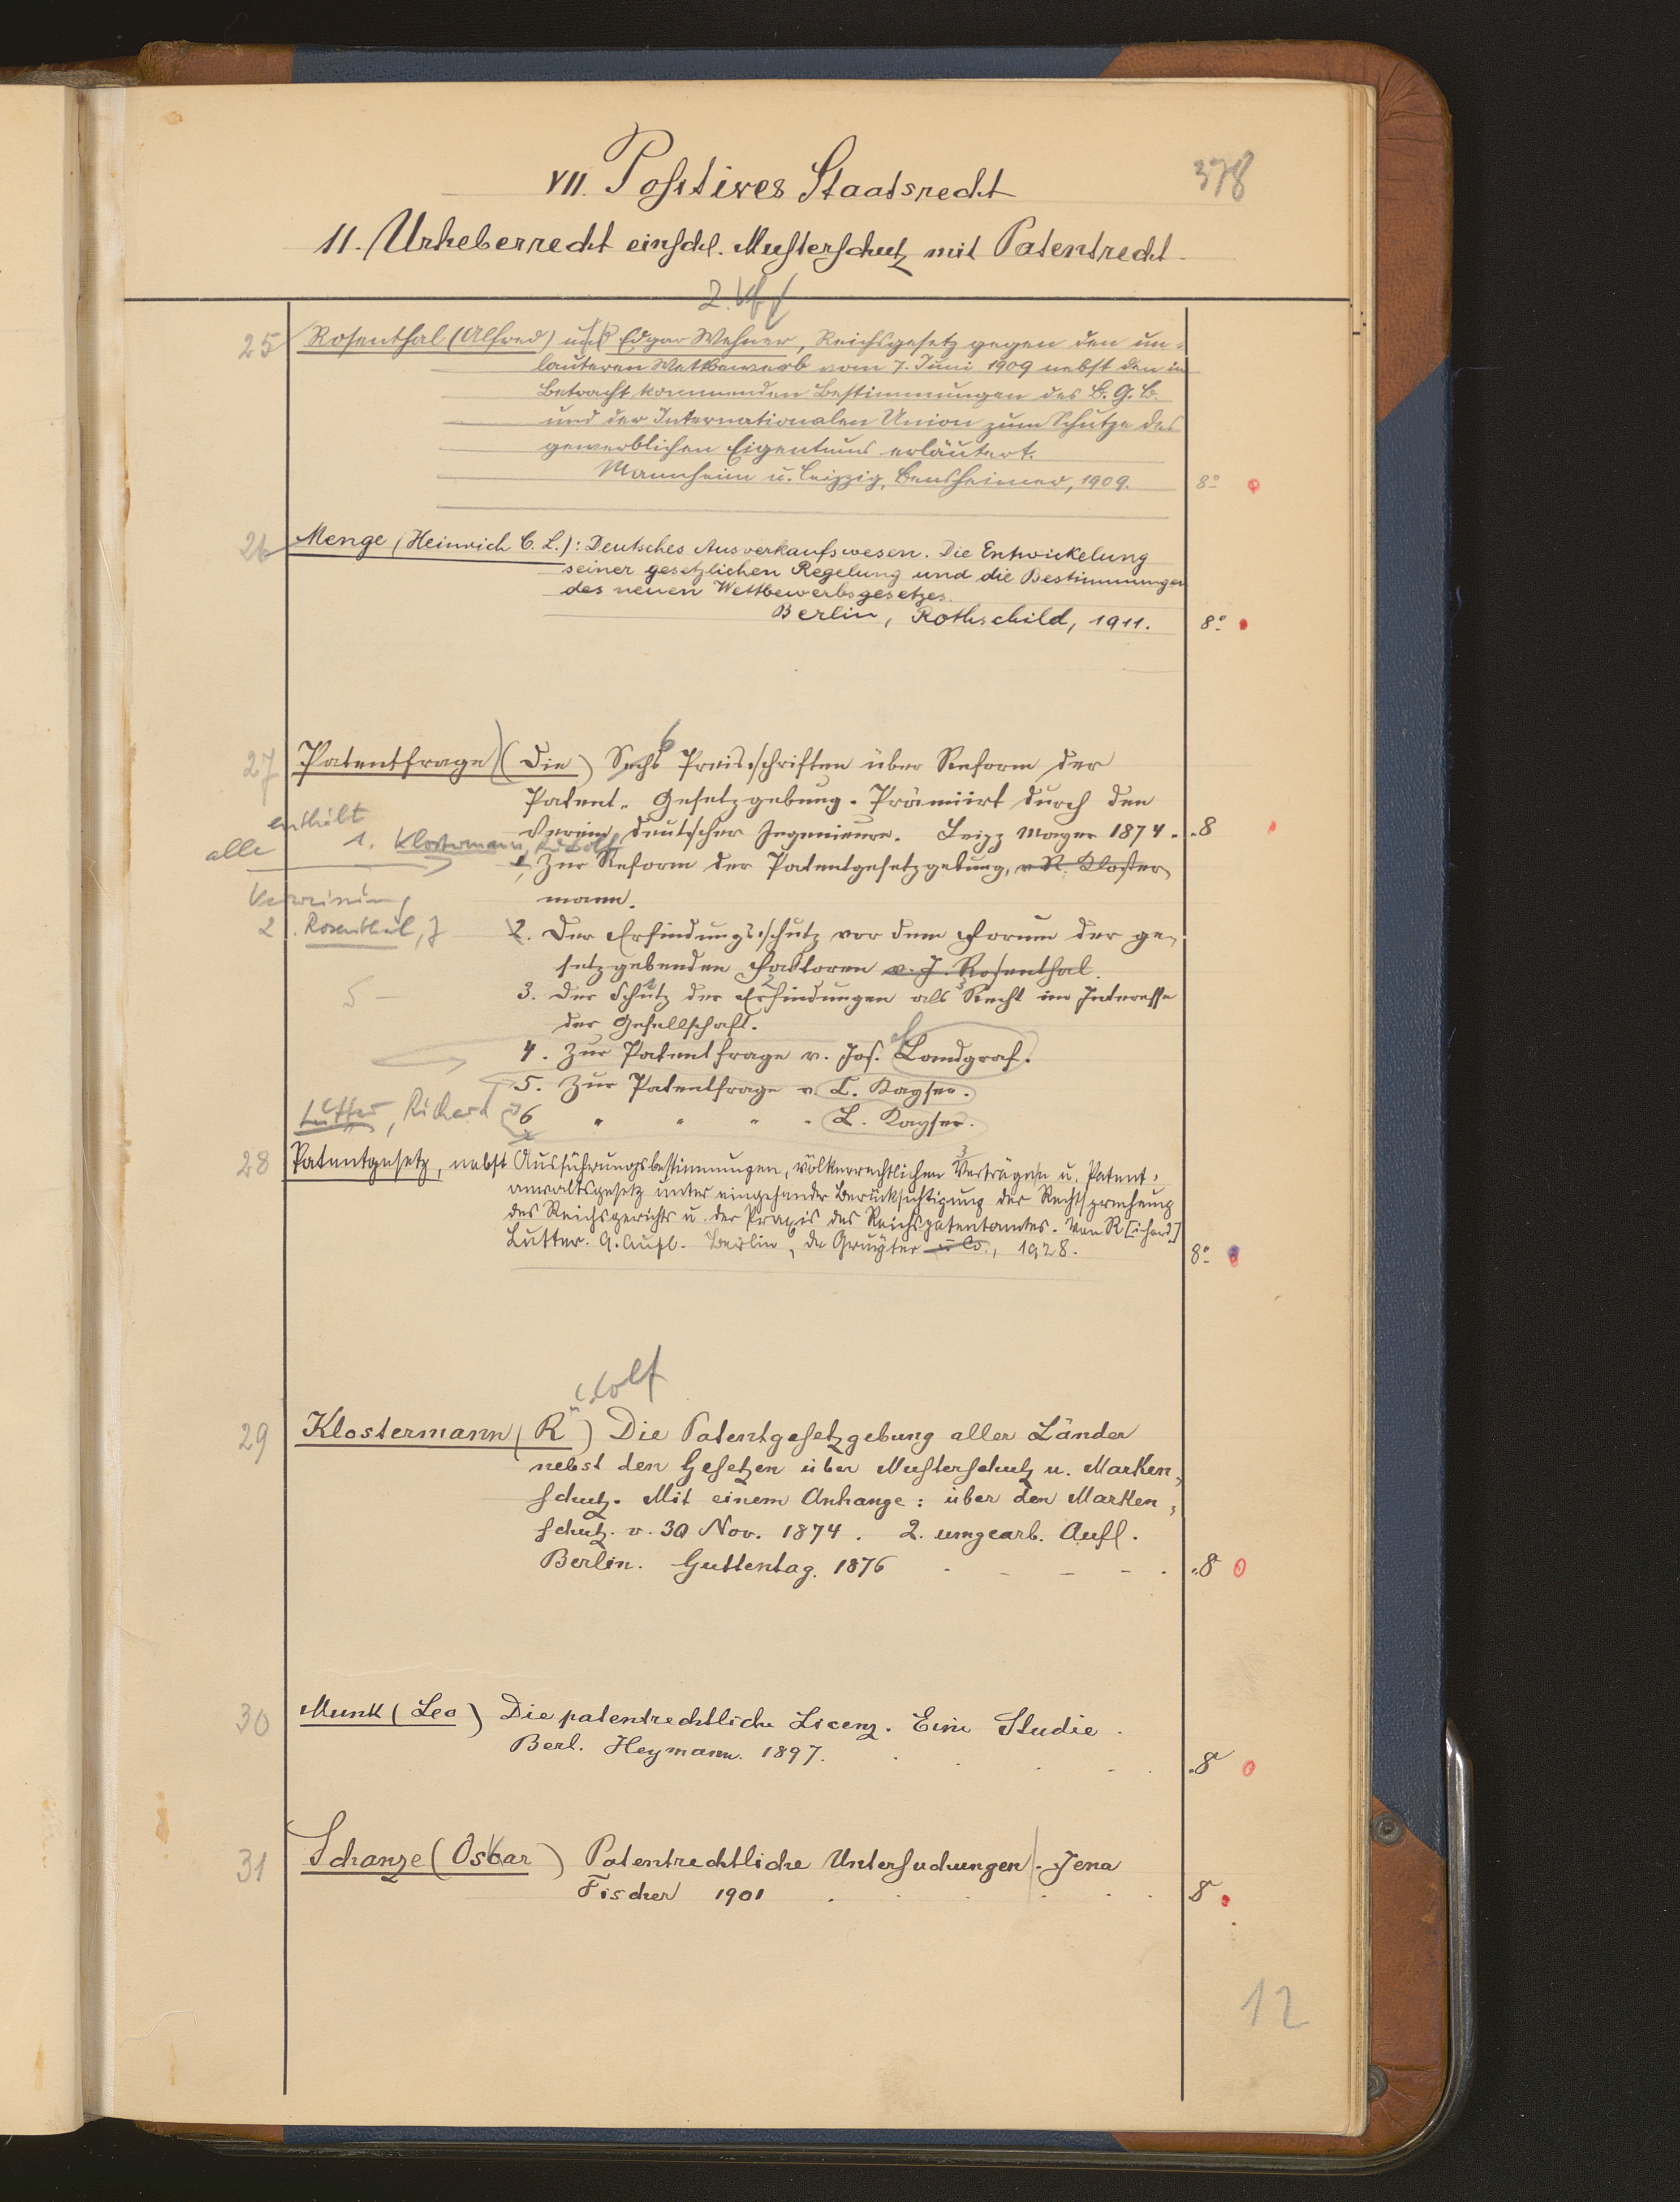 378
VII. Positives Staatsrecht
11. Urheberrecht einschl. Musterschutz mit Patentrecht.
2. Vf
25 Rosenthal (Alfred) und Edgar Wehner, Reichsgesetz gegen den un-
lauteren Wettbewerb vom 7. Juni 1909 nebst den in
Betracht kommenden Bestimmungen des B. G. B.
und der Internationalen Union zum Schutze des
gewerblichen Eigentums erläutert.
Mannheim u. Leipzig, Bensheimer, 1909. 8°
26 Menge (Heinrich C. L.): Deutsches Ausverkaufswesen. Die Entwickelung
seiner gesetzlichen Regelung und die Bestimmungen
des neuen Wettbewerbsgesetzes.
Berlin, Rothschild, 1911. 8°
6
27 Patentfrage (Die) Sechs Preisschriften über Reform der
Patent-Gesetzgebung. Prämiirt durch den
enthält
Verein deutscher Ingenieure. Leipz Mayer 1874. 8
alle 1. Klostermann, Rudolf
1. Zur Reform der Patentgesetzgebung, v. R. Kloster-
Verweisung mann.
2. Rosenthal, J 2. Der Erfindungsschutz vor dem Forum der ge-
setzgebenden Faktoren v. J. Rosenthal.
5 – 3. Der Schutz der Erfindungen als Recht im Interesse
der Gesellschaft.
4. Zur Patentfrage v. Jos. Landgraf.
5. Zur Patentfrage v. C. Kayser.
Lutter, Richard 6 " " " " L. Kayser.
28 Patentgesetz, nebst Ausführungsbestimmungen, völkerrechtlichen Verträgen u. Patent-
anwaltsgesetz unter eingehender Berücksichtigung der Rechtsprechung
des Reichsgerichts u. der Praxis des Reichspatentamtes. Von R[ichard]
Lutter. 9. Aufl. Berlin, de Gruyter u Co., 1928. 8°
udolf
29 Klostermann (R) Die Patentgesetzgebung aller Länder
nebst den Gesetzen über Musterschutz u. Marken-
schutz. Mit einem Anhange: über den Marken-
schutz. v. 30 Nov. 1874. 2. umgearb. Aufl.
Berlin. Guttentag. 1876 . - - - . 8
30 Munk (Leo) Die patentrechtliche Licenz. Eine Studie.
Berl. Heymann. 1897. 8
31 Schanze (Oskar) Patentrechtliche Untersuchungen. Jena
Fischer 1901 . . . . . . 8
12